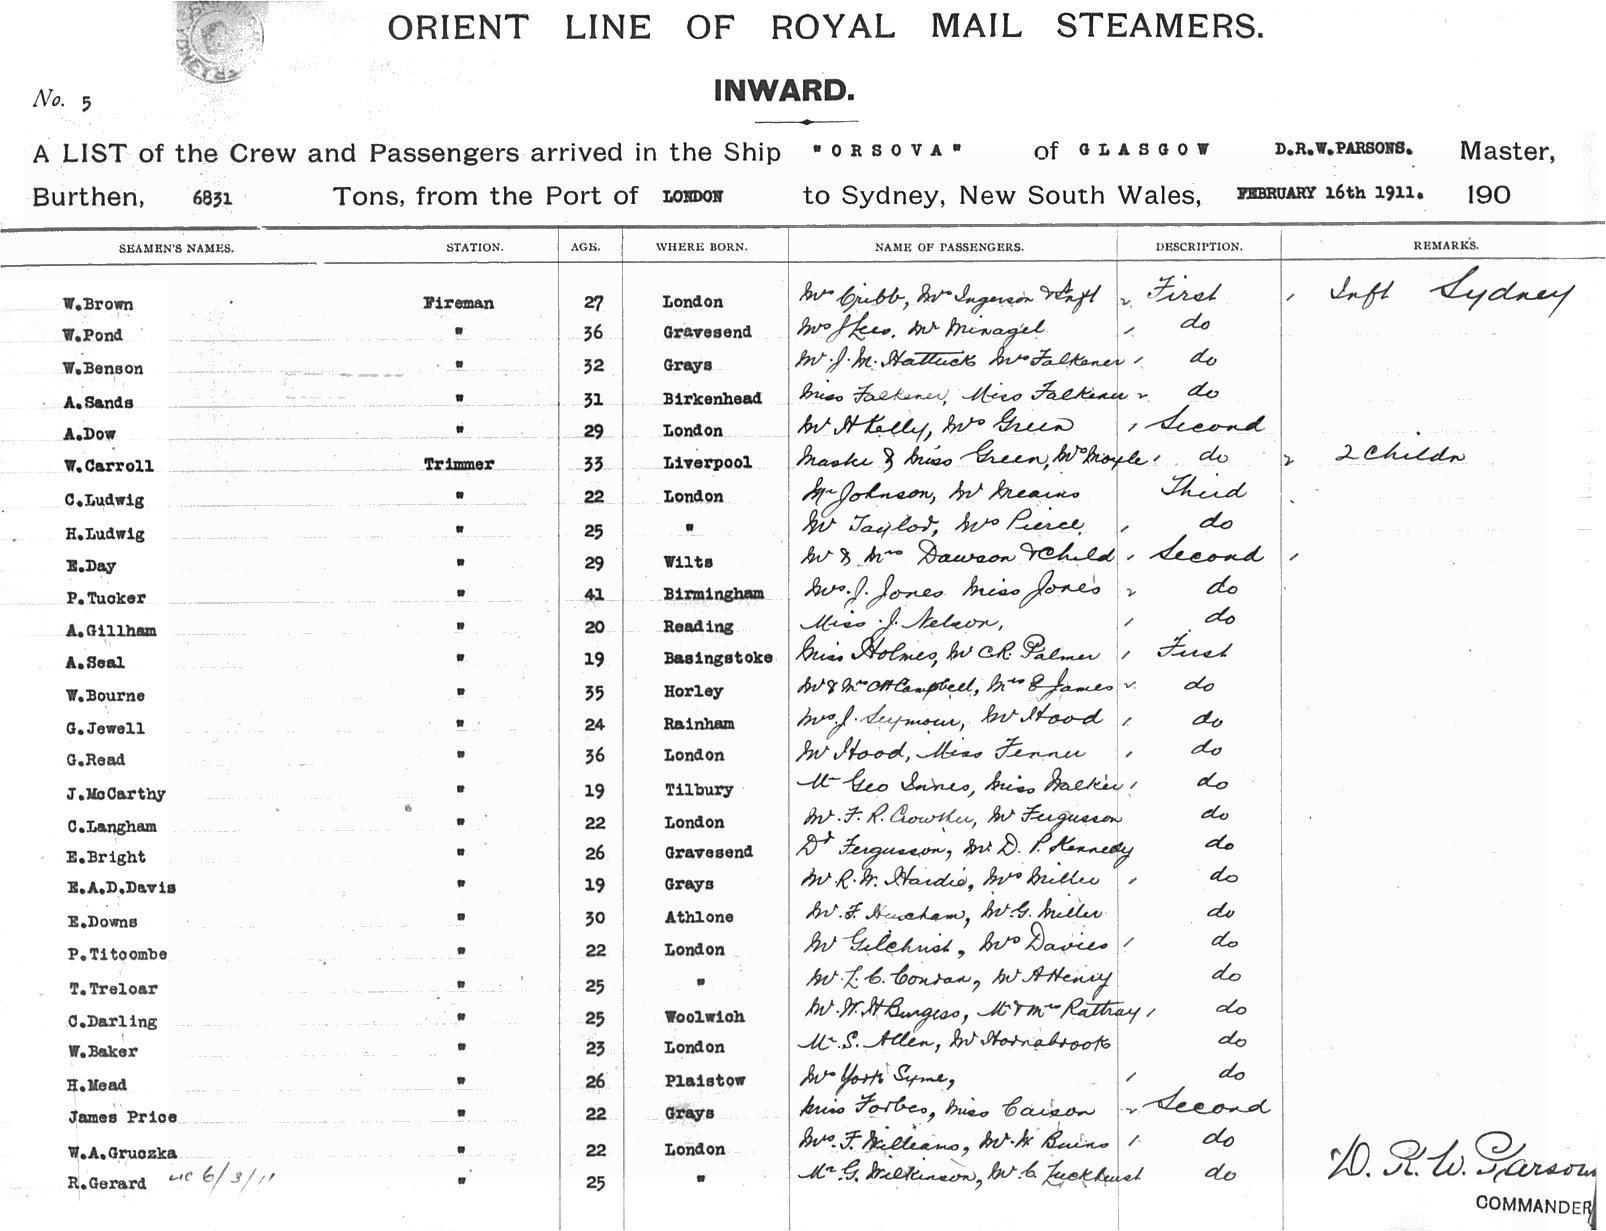 ORIENT LINE OF ROYAL MAIL STEAMERS.
INWARD.
No. 5
A LIST of the Crew and Passengers arrived in the Ship "ORSOVA" of GLASGOW D.R.W.PARSONS. Master,
Burthen, 6831 Tons, from the Port of LONDON to Sydney, New South Wales, FEBRUARY 16th 1911. 190
SEAMEN'S NAMES. STATION. AGE. WHERE BORN. NAME OF PASSENGERS. DESCRIPTION. REMARKS.
W.Brown Fireman 27 London Mrs Cribb, Mrs Ingerson & Inft 2 First 1 Inft Sydney
W.Pond " 36 Gravesend Mrs J Lees, Mr Minagel 1 do
W.Benson " 32 Grays Mr. J. M. Hattrick Mrs Falkener 1 do
A.Sands " 31 Birkenhead Miss Falkener, Miss Falkener 2 do
A.Dow " 29 London Mr H Kelly, Mrs Green 1 Second
W.Carroll Trimmer 33 Liverpool Master & Miss Green, Mrs Moyle 1 do 2 2 Childn
C.Ludwig " 22 London Mr Johnson, Mr Mearns Third
H.Ludwig " 25 " Mr Taylor, Mrs Pierce 1 do
E.Day " 29 Wilts Mr & Mrs Dawson & Child 1 Second 1
P.Tucker " 41 Birmingham Mrs. J. Jones Miss Jones 2 do
A.Gillham " 20 Reading Miss J. Nelson, 1 do
A.Seal " 19 Basingstoke Miss Holmes, Mr C R. Palmer 1 First
W.Bourne " 35 Horley Mr & Mrs Campbell, Mrs E James 2 do
G.Jewell " 24 Rainham Mrs. J. Seymour, Mr Hood 1 do
G.Read " 36 London Mr Hood, Miss Fenner 1 do
J.McCarthy " 19 Tilbury Mr Geo Innes, Miss Walker 1 do
C.Langham " 22 London Mr. F. R. Crowther, Mr Fergusson do
E.Bright " 26 Gravesend Dr Fergusson, Mr D. P. Kennedy do
E.A.D.Davis " 19 Grays Mr R. W. Hardie, Mrs Miller 1 do
E.Downs " 30 Athlone Mr. F. Huxham, Mr. G. Miller do
P.Titcombe " 22 London Mr Gilchrist, Mrs Davies 1 do
T.Treloar " 25 " Mr L. C. Conran, Mr A Henry do
C.Darling " 25 Woolwich Mr. W. H Burgess, Mr & Mrs Rattray 1 do
W.Baker " 23 London Mr. S. Allen, Mr Hornabrook do
H.Mead " 26 Plaistow Mrs York Syme, 1 do
James Price " 22 Grays Miss Forbes, Miss Carson 2 Second
W.A.Gruczka " 22 London Mrs. F. Williams, Mr. W Burns 1 do
R.Gerard 6/3/11 " 25 " Mr G. Wilkinson, Mr. C. Luckhurst do
D. R. W. Parsons
COMMANDER